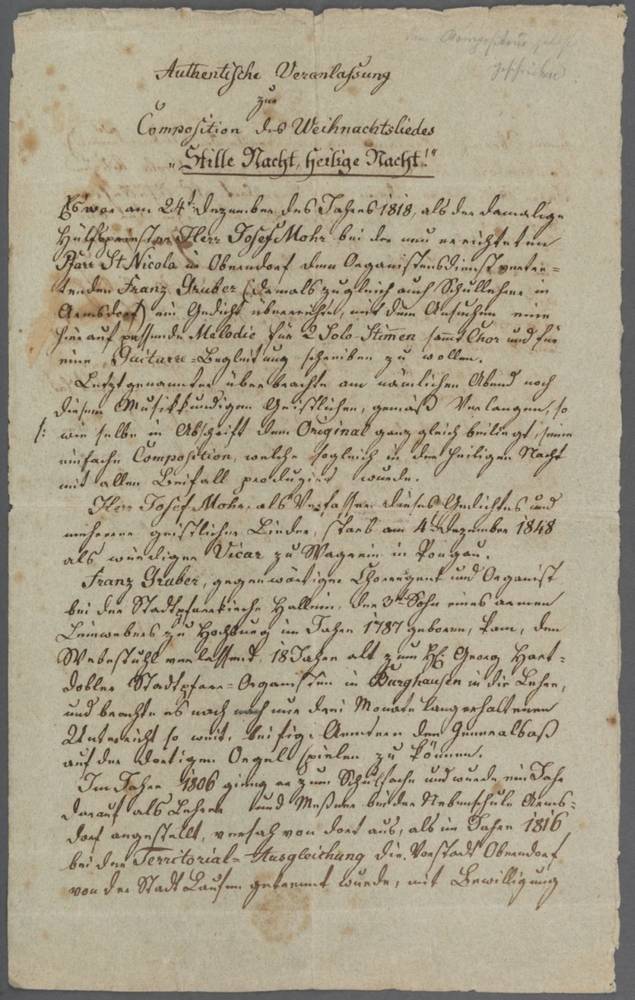 Authentische Veranlassung
zur
Composition des Weihnachtsliedes
„Stille Nacht, heilige Nacht!“
Es war am 24t Dezember des Jahres 1818, als der damalige
Hülfspriester Herr Josef Mohr bei der neu errichteten
Pfarr St Nicola in Oberndorf dem Organistendienst vertre=
tenden Franz Gruber (damals zugleich auch Schullehrer in
Arnsdorf) ein Gedicht überreichte, mit dem Ansuchen eine
hierauf passende Melodie für 2 Solo-Stimmen sammt Chor und für
eine Guitarre=Begleitung schreiben zu wollen.
Letztgenannter überbrachte am nämlichen Abend noch
diesem Musikkundigen Geistlichen, gemäß Verlangen, so
/: wie selbe in Abschrift dem Original ganz gleich beiliegt, seine
einfache Composition, welche sogleich in der heiligen Nacht
mit allem Beifall produzirt wurde.
Herr Josef Mohr, als Verfasser dieses Gedichtes und
mehrerer geistlicher Lieder, starb am 4t Dezember 1848
als würdiger Vicar zu Wagrein in Pongau.
Franz Gruber, gegenwärtiger Chorregent und Organist
bei der Stadtpfarrkirche Hallein, der 3te Sohn eines armen
Leinwebers zu Hochburg im Jahre 1787 geboren, kam, den
Webestuhl verlassend, 18 Jahre alt zum H: Georg Hart=
dobler Stadtpfarr=Organisten in Burghausen in die Lehre,
und brachte es nach nur drei Monate lang erhaltenen
Unterricht so weit, bei fig: Aemtern den Generalbaß
auf der dortigen Orgel spielen zu können.
Im Jahre 1806 gieng er zum Schulfache und wurde ein Jahr
darauf als Lehrer und Meßner bei der Nebenschule Arns=
dorf angestellt, versah von dort aus, als im Jahre 1816
bei der Territorial=Ausgleichung die Vorstadt Oberndorf
von der Stadt Laufen getrennt wurde, mit Bewilligung